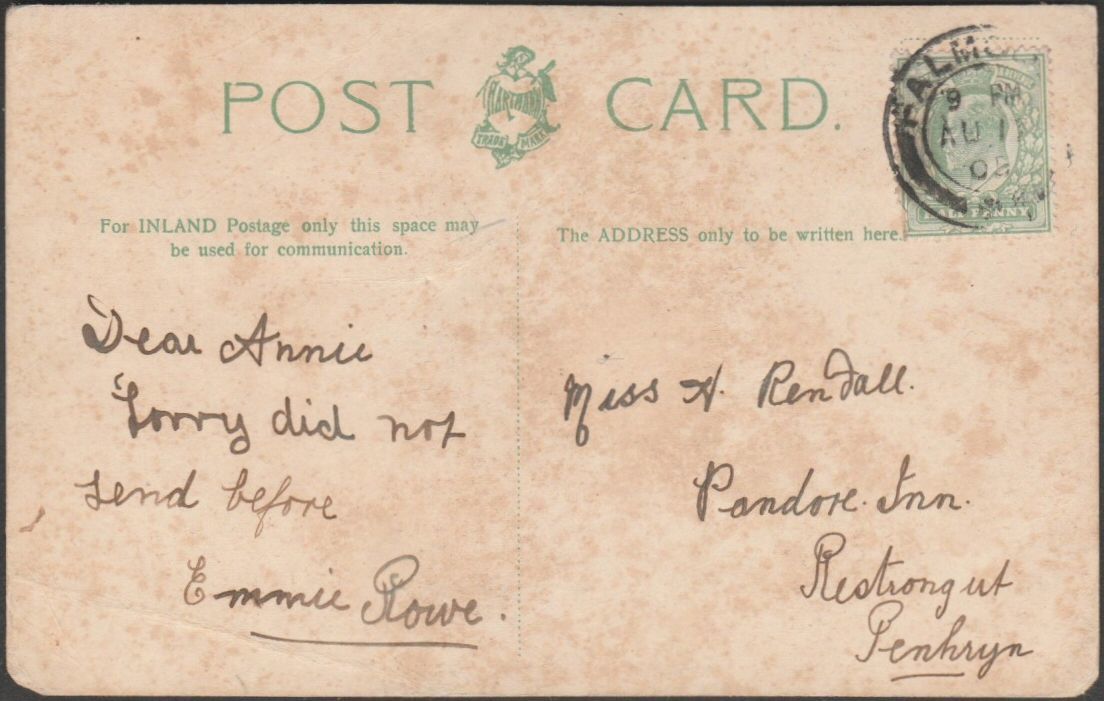 POST CARD.
HARTMANN
TRADE MARK
FALMO
9 PM
AU 1
05
HALF PENNY
For INLAND Postage only this space may
be used for communication.
The ADDRESS only to be written here.
Dear Annie
Sorry did not
send before
Emmie Rowe.
Miss A. Rendall.
Pandore. Inn.
Restrongut
Penhryn